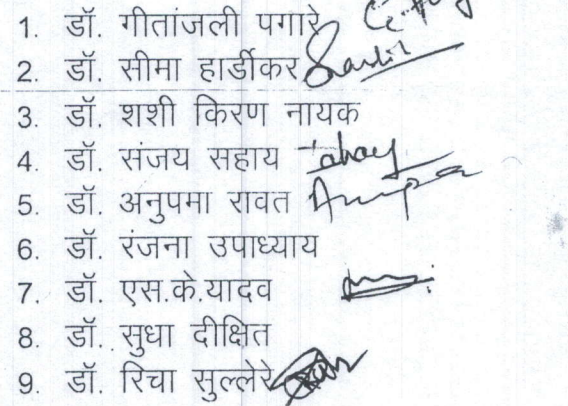 1. डॉ. गीतांजली पगारे
2. डॉ. सीमा हार्डीकर
3. डॉ. शशी किरण नायक
4. डॉ. संजय सहाय
5. डॉ. अनुपमा रावत
6. डॉ. रंजना उपाध्याय
7. डॉ. एस.के.यादव
8. डॉ. सुधा दीक्षित
9. डॉ. रिचा सुल्लेरे